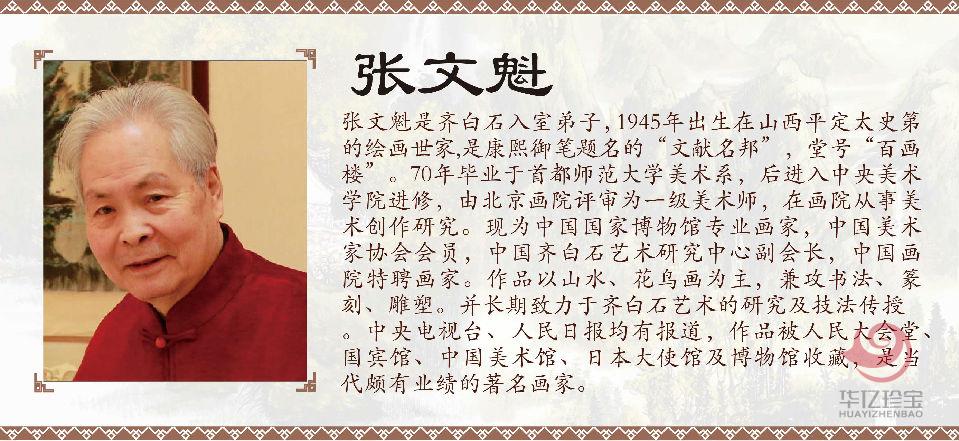 张文魁
张文魁是齐白石入室弟子，1945年出生在山西平定太史第
的绘画世家,是康熙御笔题名的“文献名邦”，堂号“百画
楼”。70年毕业于首都师范大学美术系，后进入中央美术
学院进修，由北京画院评审为一级美术师，在画院从事美
术创作研究。现为中国国家博物馆专业画家，中国美术
家协会会员，中国齐白石艺术研究中心副会长，中国画
院特聘画家。作品以山水、花鸟画为主，兼攻书法、篆
刻、雕塑。并长期致力于齐白石艺术的研究及技法传授
。中央电视台、人民日报均有报道，作品被人民大会堂、
国宾馆、中国美术馆、日本大使馆及博物馆收藏，是当
代颇有业绩的著名画家。
华亿珍宝
HUAYIZHENBAO